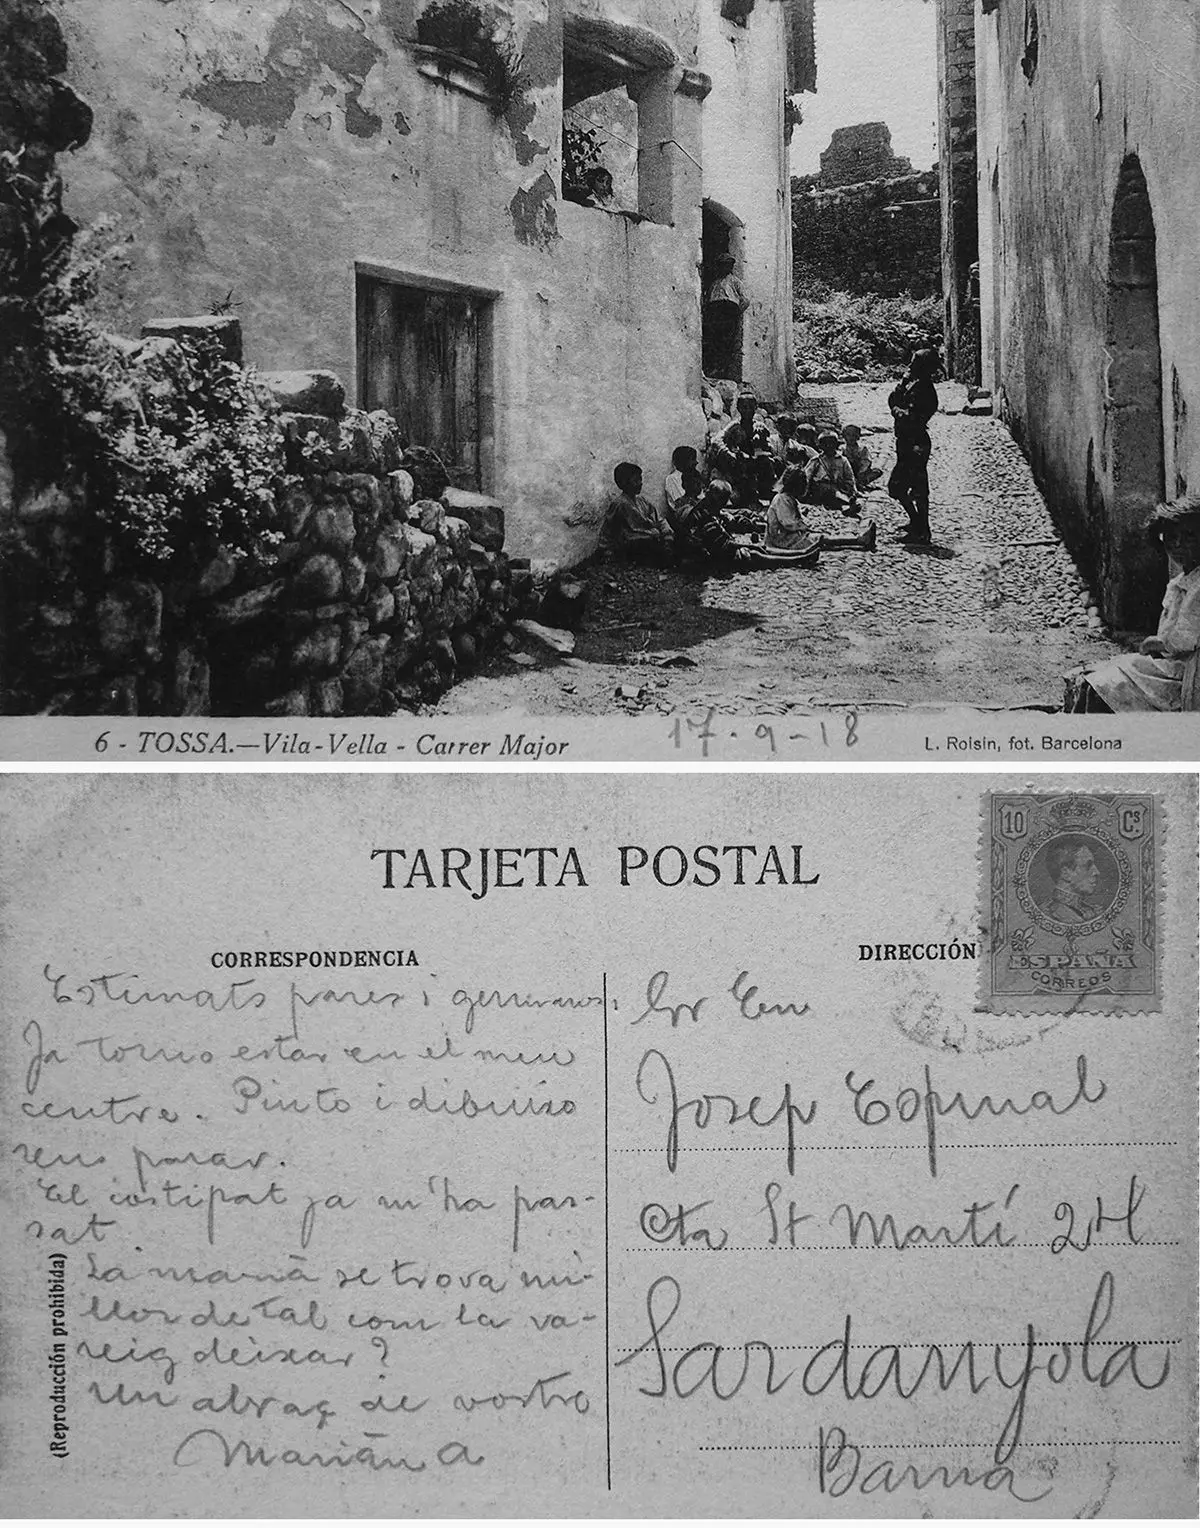 6 - TOSSA.—Vila-Vella - Carrer Major
17-9-18
L. Roisin, fot. Barcelona
TARJETA POSTAL
10 Cs
ESPAÑA
CORREOS
CORRESPONDENCIA
DIRECCIÓN
Estimats pares i germans:
Ja torno estar en el meu
centre. Pinto i dibuixo
sens parar.
El costipat ja m'ha pas-
sat
La mamà se trova mi-
llor de tal com la va-
reig deixar?
un abraç de vostre
Marián A
(Reproducción prohibida)
Sr En
Josep Espinal
Cta St Martí 24
Sardanyola
Barna